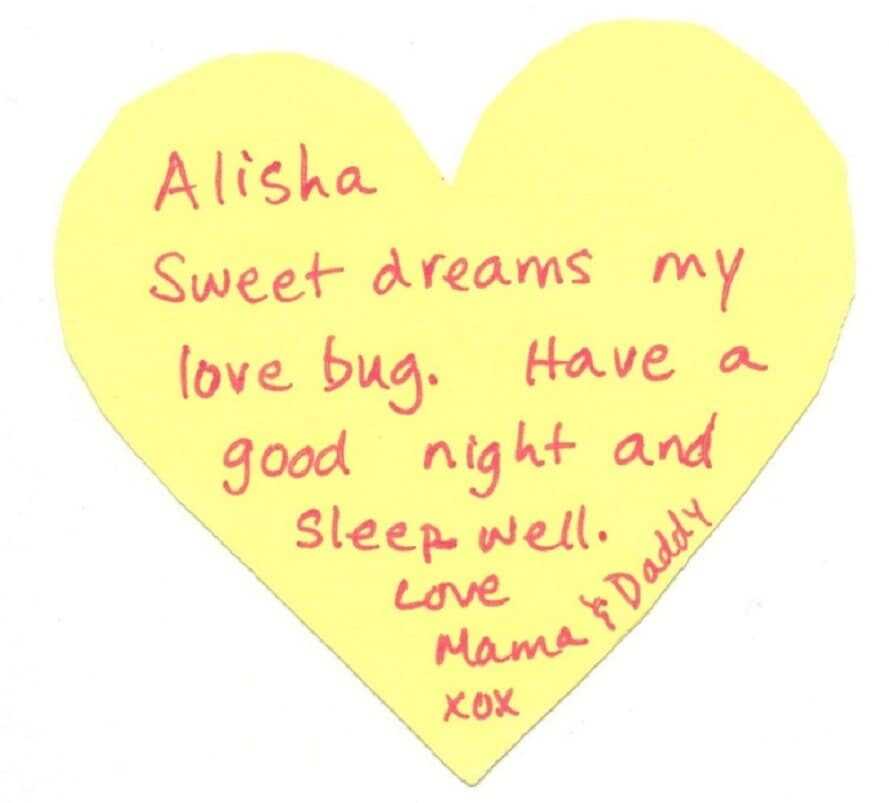 Alisha
Sweet dreams my
love bug. Have a
good night and
sleep well.
Love
Mama & Daddy
xox